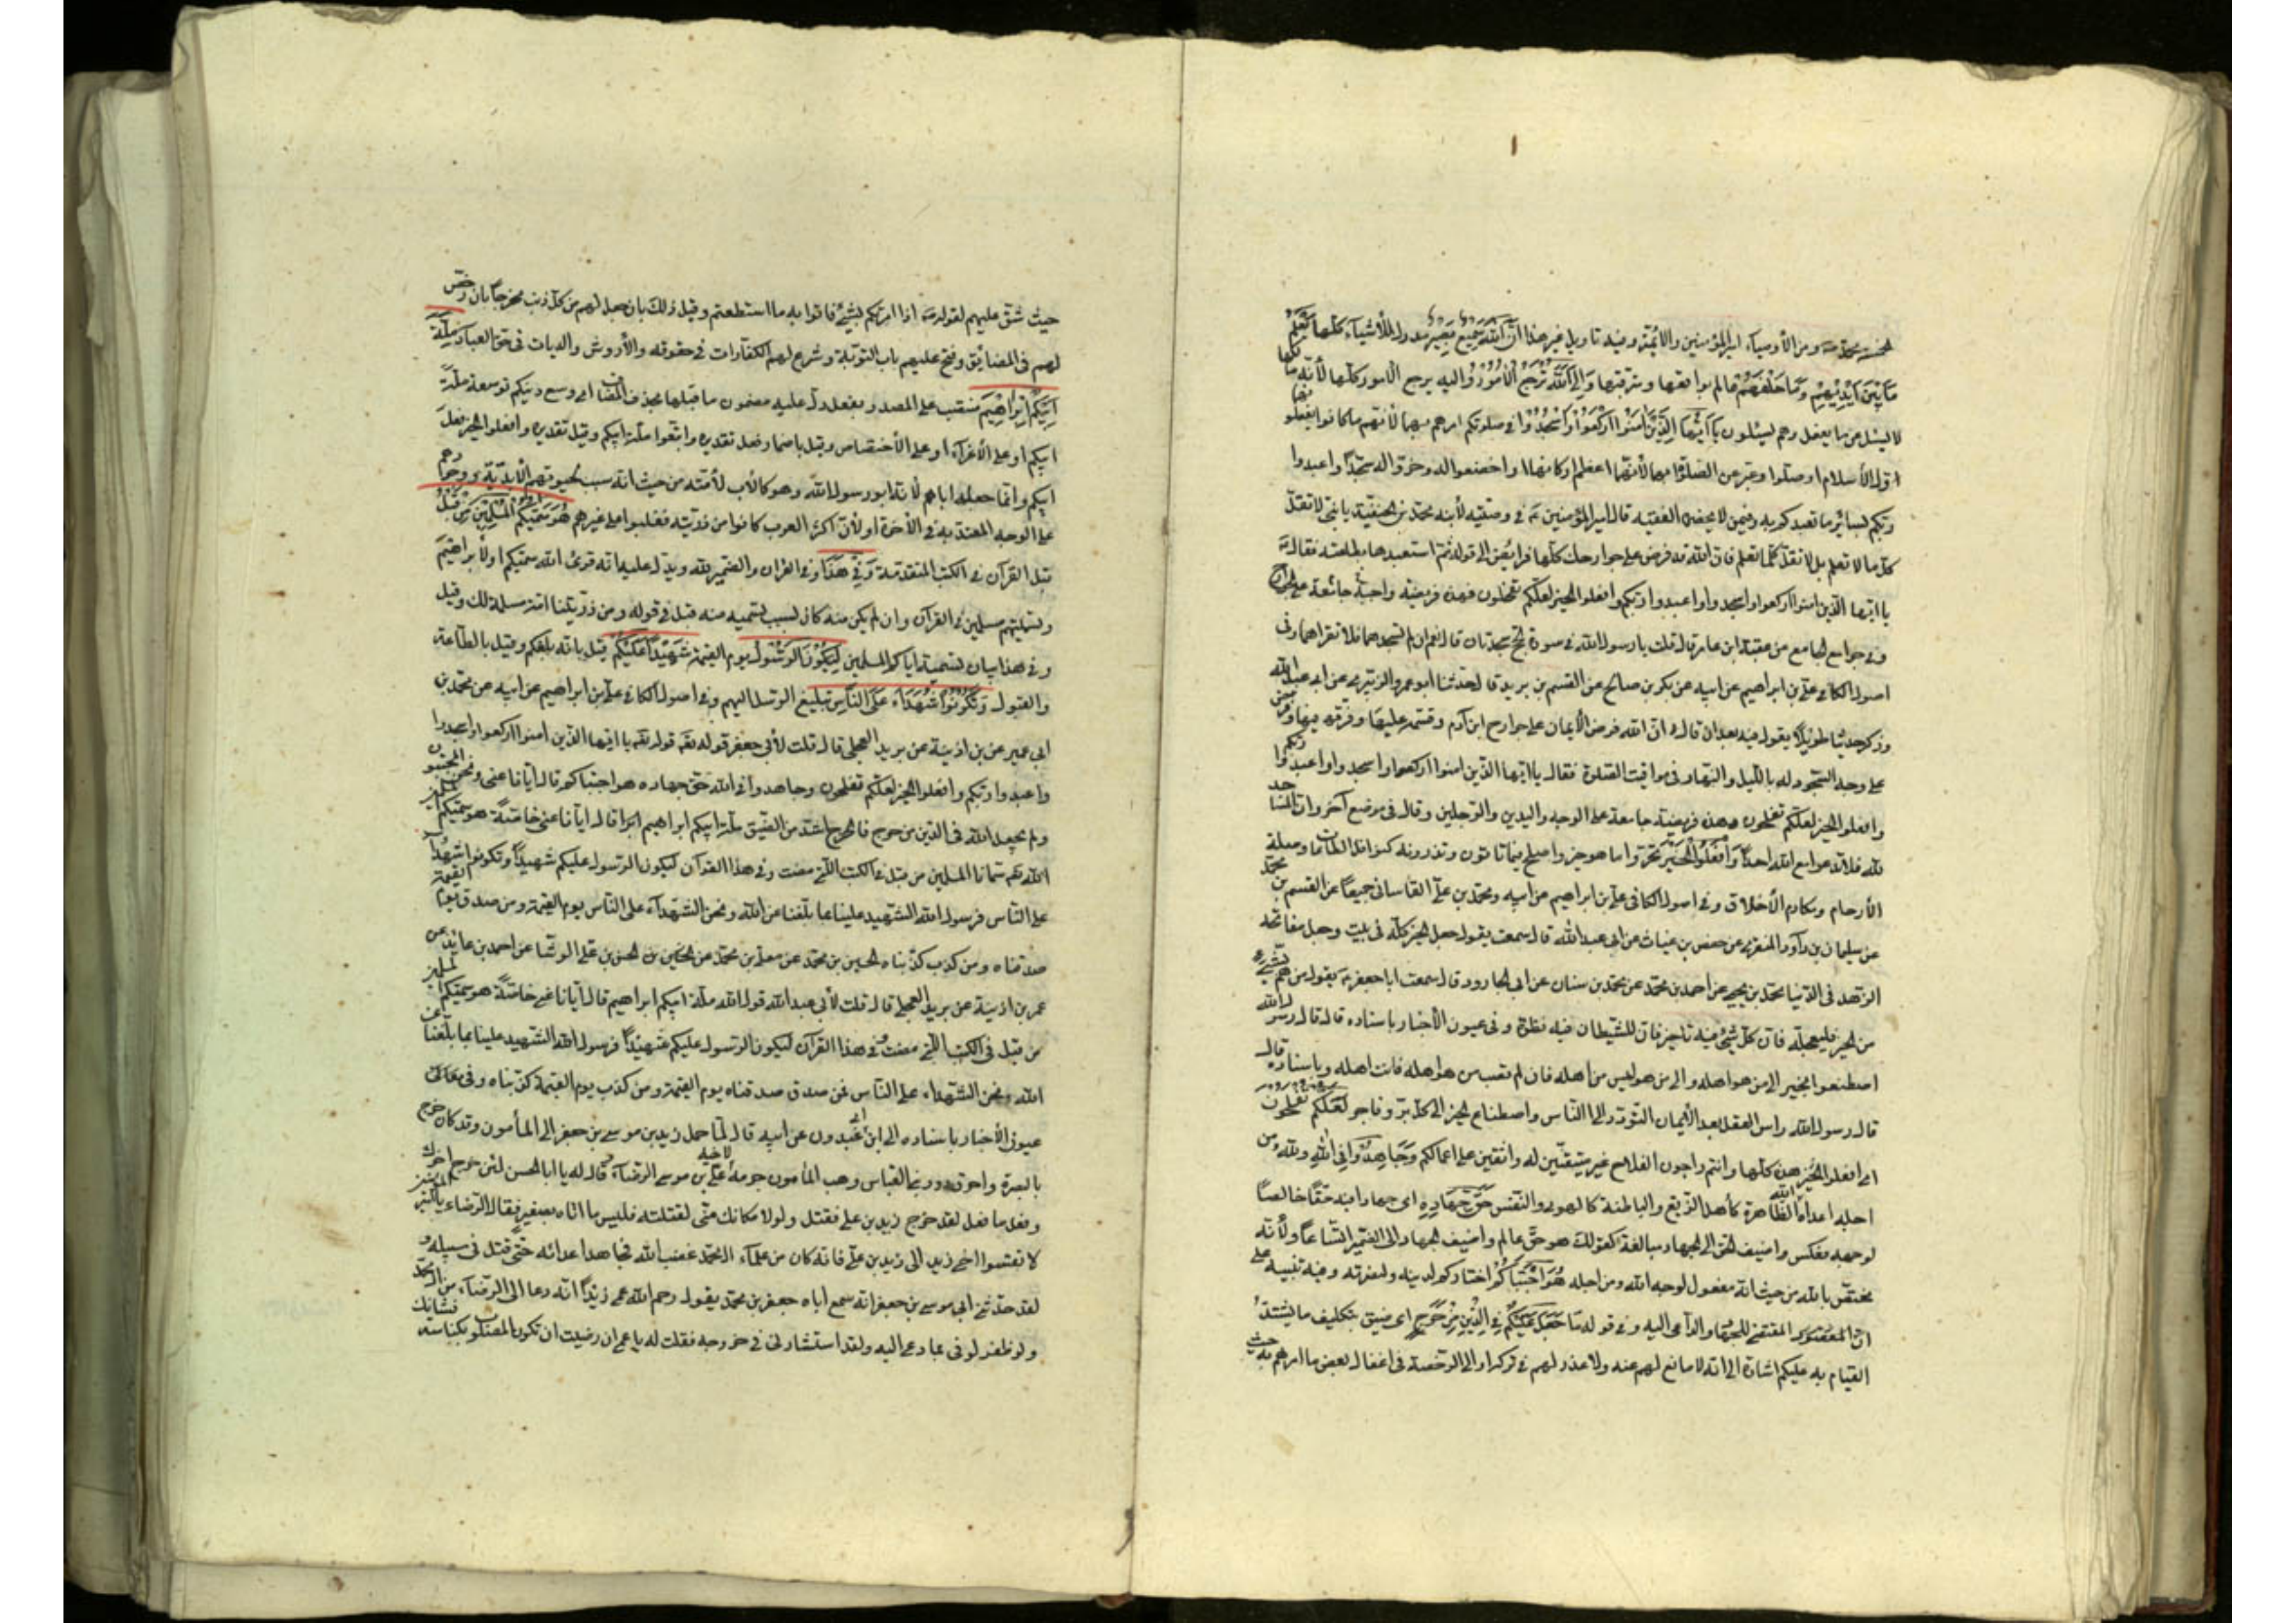 لخمسة محمد ومن الأوصياء امير المؤمنين والأئمة وفيه تاويل غير هذا ان الله سميع بصير مدرك للأشياء كلها يعلم
ما بين ايديهم وما خلفهم عالم بواقعها ومترقبها والى الله ترجع الأمور واليه يرجع الأمور كلها لأنه مالكها
لا يسئل عما يفعل وهم يسئلون يا ايها الذين امنوا اركعوا واسجدوا في صلوتكم امرهم بهما لأنهم ما كانوا يفعلونهما
اول الأسلام او صلوا وعبر عن الصلوة بهما لأنهما اعظم اركانها او اخضعوا لله وخروا له سجدا واعبدوا
ربكم بسائر ما تعبدكم به وفيمن لا يحضره الفقيه قال امير المؤمنين في وصيته لأبنه محمد بن الحنفية يا بني لا تقل
كل ما لا تعلم بل لا تقل كلما تعلم فان الله قد فرض على جوارحك كلها فرايض الى قوله ثم استعبدها بطاعته فقال
يا ايها الذين امنوا اركعوا واسجدوا واعبدوا ربكم وافعلوا الخير لعلكم تفلحون فهذه فريضة واجبة جامعة على الجوارح
وفي جوامع الجامع عن عقبة ابن عامر قال قلت يا رسول الله في سورة الحج سجدتان قال نعم ان لم تسجدهما فلا تقراهما وفي
اصول الكافي علي بن ابراهيم عن ابيه عن بكر بن صالح عن القسم بن بريد قال حدثنا ابو عمرو الزبيري عن ابي عبد الله
وذكر حديثا طويلا يقول فيه بعد ان قال ان الله فرض الأيمان على جوارح ابن آدم وقسمه عليها وفرقه فيها وفرض
على وجه السجود له بالليل والنهار في مواقيت الصلوة فقال يا ايها الذين امنوا اركعوا واسجدوا واعبدوا ربكم
وافعلوا الخير لعلكم تفلحون وهذه فريضة جامعة على الوجه واليدين والرجلين وقال في موضع آخر وان المساجد
لله فلا تدعوا مع الله احدا وافعلوا الخير تحروا ما هو خير واصلح فيما تاتون وتذرون كنوافل الطاعات وصلة
الأرحام ومكارم الأخلاق وفي اصول الكافي علي بن ابراهيم عن ابيه ومحمد بن علي القاساني جميعا عن القسم بن محمد
عن سليمان بن داود المنقري عن حفص بن غياث عن ابي عبد الله قال سمعته يقول جعل الخير كله في بيت وجعل مفاتحه
الزهد في الدنيا محمد بن يحيى عن احمد بن محمد عن محمد بن سنان عن ابي الجارود قال سمعت ابا جعفر يقول من هم بشئ
من الخير فليعجله فان كل شئ فيه تاخير فان للشيطان فيه نظرة وفي عيون الأخبار باسناده قال قال رسول الله
اصطنعوا الخير الى من هو اهله والى من هو ليس من اهله فان لم تصب من هو اهله فانت اهله وباسناده قال
قال رسول الله راس العقل بعد الأيمان التودد الى الناس واصطناع الخير الى كل بر وفاجر لعلكم تفلحون
اي افعلوا الخير هذه كلها وانتم راجون الفلاح غير متيقنين له واثقين على اعمالكم وجاهدوا في الله ولله ومن
اجله اعداء الله الظاهرة كأهل الزيغ والباطنة كالهوى والنفس حق جهاده اى جهادا فيه حقا خالصا
لوجهه فعكس واضيف الحق الى الجهاد مبالغة كقولك هو حق عالم واضيف الجهاد الى الضمير اتساعا ولأنه
مختص بالله من حيث انه مفعول لوجه الله ومن اجله هو اجتباكم اختاركم لدينه ولنصرته وفيه تنبيه على
ان المقتضي للجهاد والداعي اليه وفي قوله وما جعل عليكم في الدين من حرج اى ضيق بتكليف ما يشتد
القيام به عليكم اشارة الى انه لا مانع لهم عنه ولا عذر لهم في تركه او الى الرخصة في اغفال بعض ما امرهم به حيث
حيث شق عليهم لقوله اذا امرتكم بشئ فاتوا به ما استطعتم وقيل ذلك بان جعل لهم من كل ذنب مخرجا بان رخص
لهم في المضائق وفتح عليهم باب التوبة وشرع لهم الكفارات في حقوقه والأروش والديات في حق العباد ملة
ابيكم ابراهيم منتصب على المصدر بفعل دل عليه مضمون ما قبلها بحذف المضاف اى وسع دينكم توسعة ملة
ابيكم او على الأغراء او على الأختصاص وقيل باضمار فعل تقديره واتبعوا ملة ابيكم وقيل تقديره وافعلوا الخير فعل
ابيكم وانما جعله اباهم لأنه ابو رسول الله وهو كالأب لأمته من حيث انه سبب لحيوتهم الأبدية ووجودهم
على الوجه المعتد به في الآخرة او لأن اكثر العرب كانوا من ذريته فغلبوا على غيرهم هو سميكم المسلمين من قبل
قبل القرآن في الكتب المتقدمة وفي هذا وفي القران والضمير لله ويدل عليه انه قرئ الله سميكم او لأبراهيم
وتسميتهم مسلمين في القرآن وان لم يكن منه كان بسبب تسميته من قبل في قوله ومن ذريتنا امة مسلمة لك وقيل
وفي هذا بيان تسميته اياكم المسلمين ليكون الرسول يوم القيمة شهيدا عليكم قيل بانه بلغكم وقيل بالطاعة
والقبول وتكونوا شهداء على الناس بتبليغ الرسل اليهم وفي اصول الكافي علي بن ابراهيم عن ابيه عن محمد بن
ابي عمير عن بن اذينة عن بريد العجلي قال قلت لأبي جعفر قوله تعالى يا ايها الذين امنوا اركعوا واسجدوا
واعبدوا ربكم وافعلوا الخير لعلكم تفلحون وجاهدوا في الله حق جهاده هو اجتباكم قال ايانا عنى ونحن المجتبون
ولم يجعل الله في الدين من حرج فالحرج اشد من الضيق ملة ابيكم ابراهيم قال ايانا عنى خاصة هو سميكم المسلمين
الله سمانا المسلمين من قبل في الكتب التي مضت وفي هذا القرآن ليكون الرسول عليكم شهيدا وتكونوا شهداء
على الناس فرسول الله الشهيد علينا بما بلغنا عن الله ونحن الشهداء على الناس يوم القيمة فمن صدق يوم القيمة
صدقناه ومن كذب كذبناه الحسين بن محمد عن معلى بن محمد عن الحسن بن علي الوشا عن احمد بن عائذ عن
عمر بن اذينة عن بريد العجلي قال قلت لأبي عبد الله قول الله ملة ابيكم ابراهيم قال ايانا عنى خاصة هو سميكم المسلمين
من قبل في الكتب التي مضت وفي هذا القرآن ليكون الرسول عليكم شهيدا فرسول الله الشهيد علينا بما بلغنا عن
الله ونحن الشهداء على الناس فمن صدق صدقناه يوم القيمة ومن كذب يوم القيمة كذبناه وفي
عيون الأخبار باسناده الى ابن ابي عبدون عن ابيه قال لما حمل زيد بن موسى بن جعفر الى المأمون وقد كان خرج
بالبصرة واحرق دور بني العباس وهب المأمون جرمه لأخيه علي بن موسى الرضا قال له يا ابا الحسن لئن خرج اخوك
وفعل ما فعل لقد خرج زيد بن علي فقتل ولولا مكانك مني لقتلته فليس ما اتاه بصغير فقال الرضا يا امير المؤمنين
لا تقس اخي زيد الى زيد بن علي فانه كان من علماء آل محمد غضب الله فجاهد اعدائه حتى قتل في سبيله و
لقد حدثني ابي موسى بن جعفر انه سمع اباه جعفر بن محمد يقول رحم الله عمي زيدا انه دعا الى الرضا من آل محمد
ولو ظفر لوفى بما دعى اليه ولقد استشارني في خروجه فقلت له يا عم ان رضيت ان تكون المصلوب بكناسة فشانك